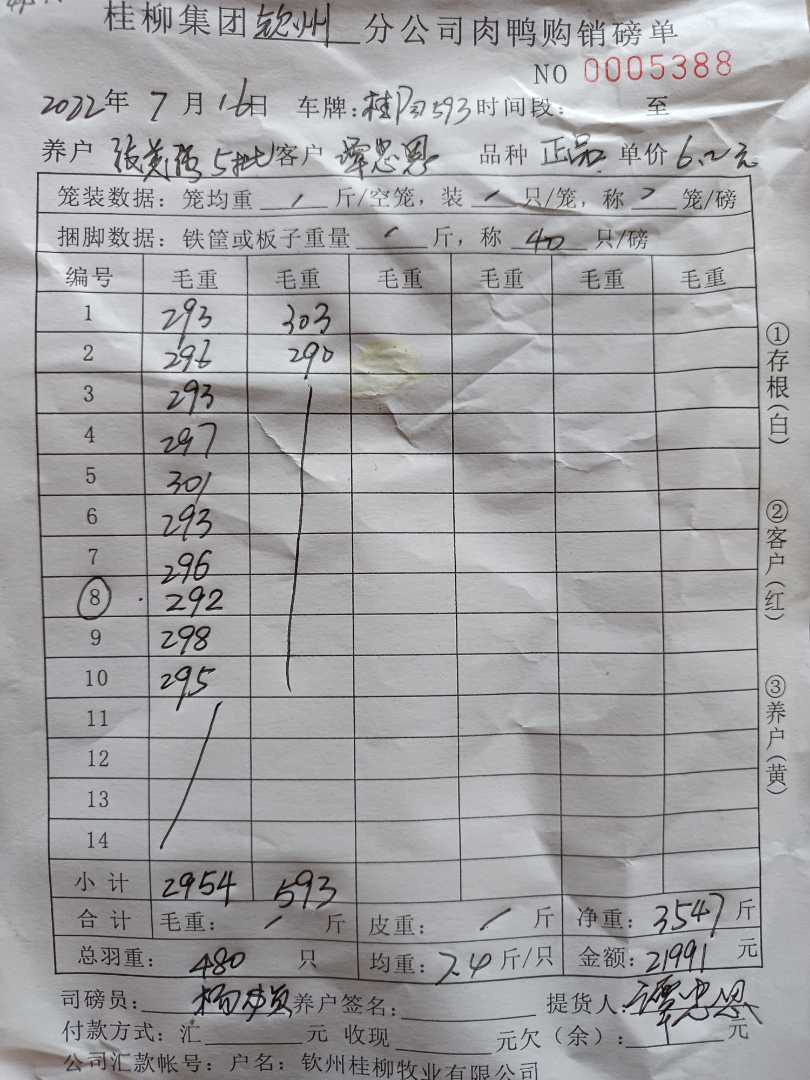 桂柳集团钦州分公司肉鸭购销磅单
NO 0005388
2022年7月16日 车牌:桂 593 时间段: 至
养户 5批 客户 谭忠恩 品种 正品 单价 6.2元
笼装数据:笼均重 / 斤/空笼,装 / 只/笼,称 / 笼/磅
捆脚数据:铁筐或板子重量 / 斤,称 40 只/磅
编号 毛重 毛重 毛重 毛重 毛重 毛重
1 293 303
2 296 290
3 293
4 297
5 301
6 293
7 296
8 292
9 298
10 295
11
12
13
14
小计 2954 593
合计 毛重: / 斤 皮重: / 斤 净重:3547斤
总羽重: 480 只 均重:7.4斤/只 金额:21991元
司磅员: 养户签名: 提货人:谭忠恩
付款方式:汇 元 收现 元欠(余): 元
公司汇款帐号:户名:钦州桂柳牧业有限公司
①存根(白)
②客户(红)
③养户(黄)